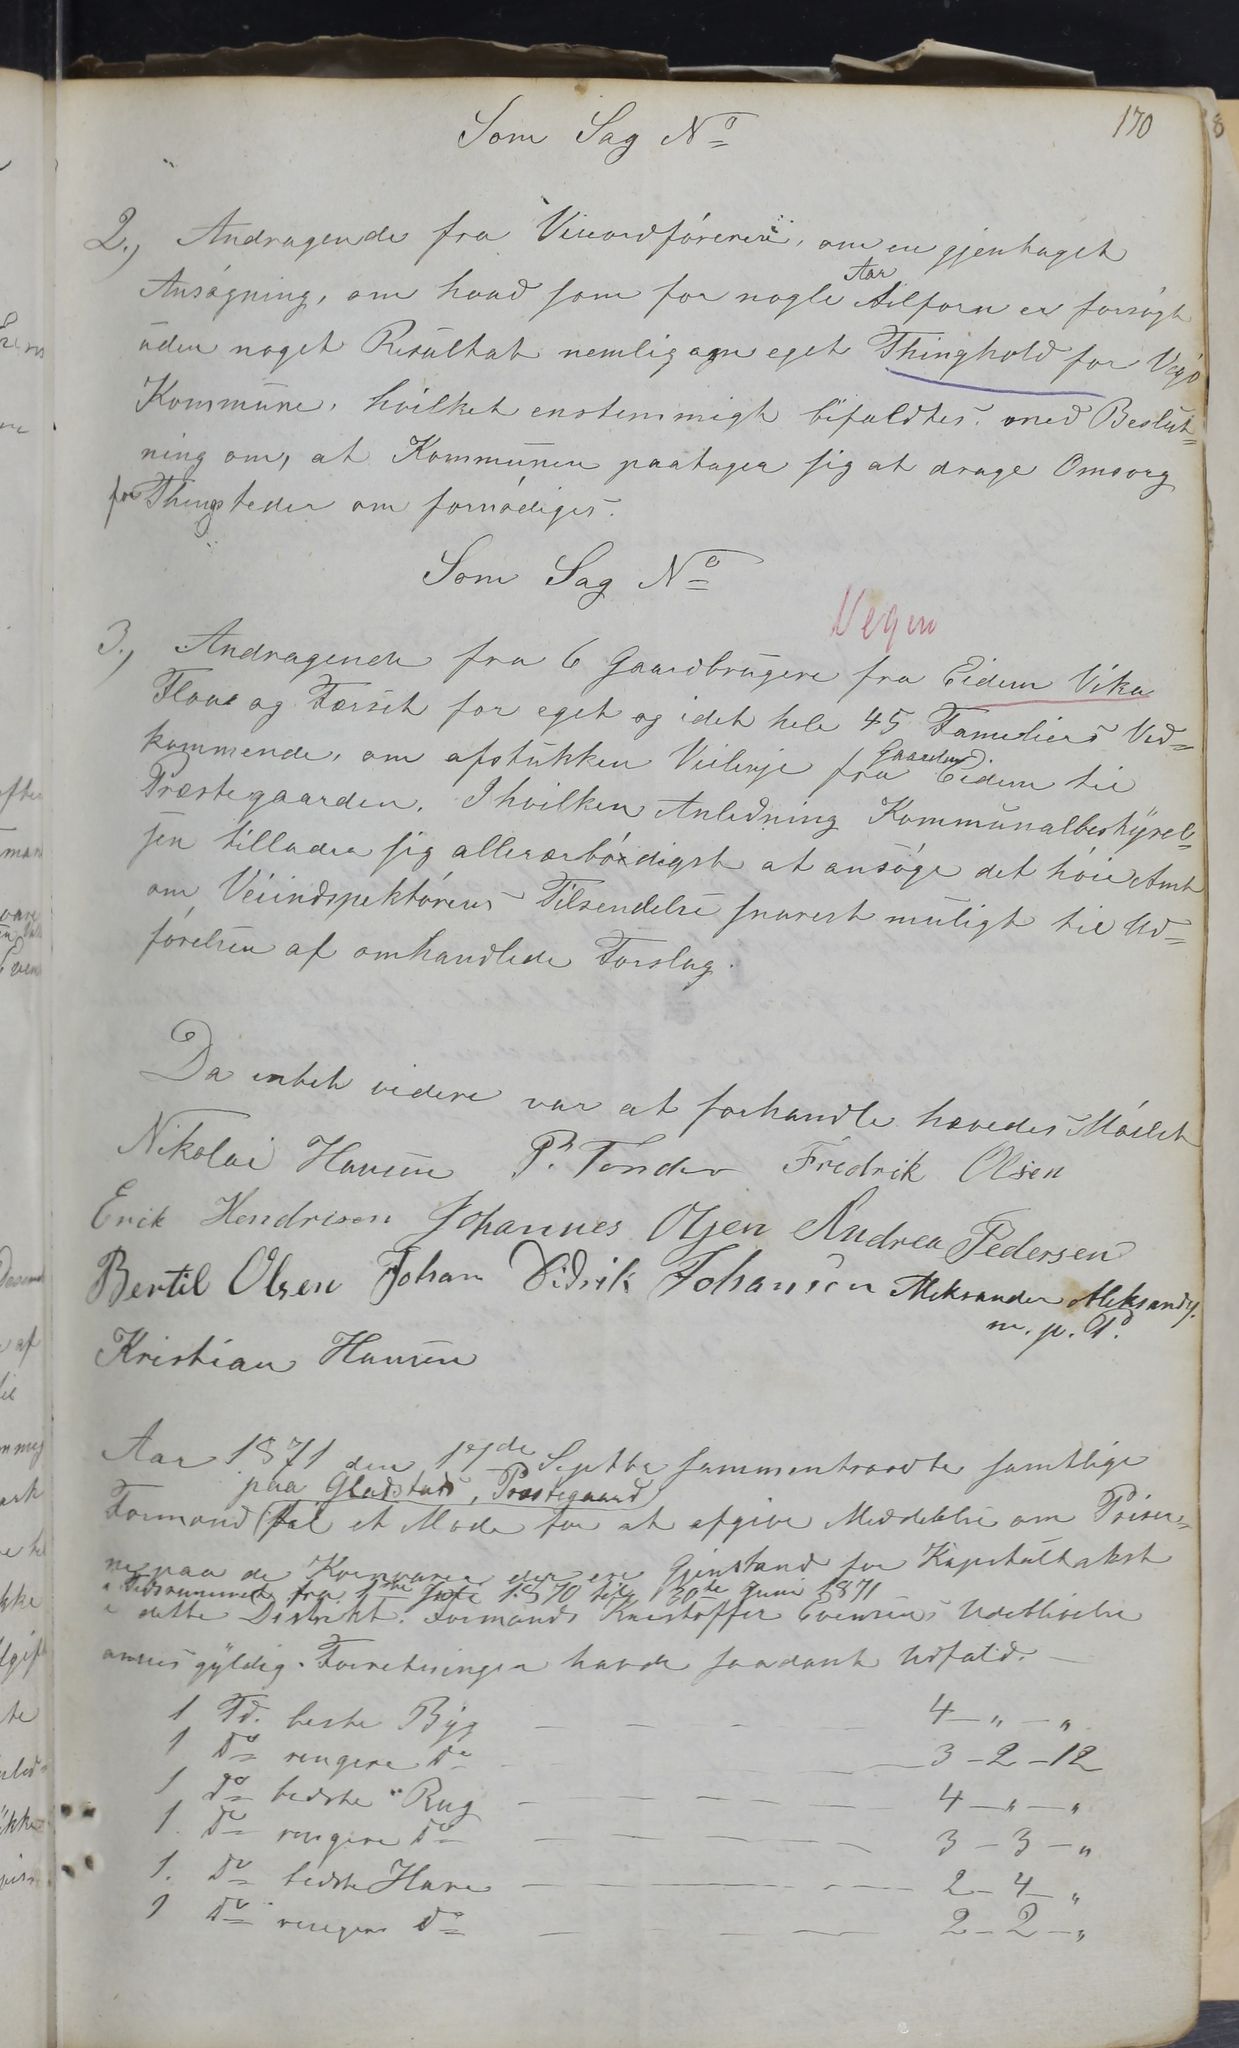 170
Som Sag No
2., Andragende fra Viceordføreren, om en gjentaget
Ansøgning, om hvad som for nogle Aar tilforn er forsøgt
uden noget Resultat nemlig om eget Thinghold for Vegø
Kommune, hvilket enstemmigt bifaldtes med Beslut=
ning om, at Kommunen paatager sig at drage Omsorg
for Thingsteder om fornødiges.
Som Sag No
Vegen
3., Andragende fra 6 Gaardbrugere fra Eidem Vika
Floua og Forset for eget og idet hele 45 Familiers Ved=
kommende, om afstukken Veilinje fra Gaarden Eidem til
Præstegaarden. I hvilken Anledning Kommunalbestyrel=
sen tillader sig allerærbødigst at ansøge det høie Amt
om Veiindspektørens Tilsendelse snarest muligt til Ud=
førelsen af omhandlede Forslag.
Da intet videre var at forhandle hævedes Mødet
Nikolai Hansen P. Tonder Fredrik Olsen
Erik Hendriksen Johannes Olsen Andrea Pedersen
Bertil Olsen Johan Didrik Johansen Aleksander Aleksands.
m. p. P.
Kristian Hansen
Aar 1871 den 17de Septbr sammentraadte samtlige
paa Gladstad, Præstegaard
Formænd til et Møde for at afgive Meddelelse om Priser=
ne paa de Kornvarer der er Gjenstand for Kapitultakst
i Tidsrummet fra 1ste Juli 1870 til 30te Juni 1871
i dette Distrikt. Formands Kristoffer Evensens Udeblivelse
ansees gyldig. Forretningen havde saadant Udfald.
1 Td. beste Byg — — — — 4 — „ — „
1 Do ringere Do — — — 3 — 2 — 12
1 do bedste Rug — — — — 4 — „ — „
1. Do ringere Do — — — — 3 — 3 — „
1. Do bedste Havre — — — — 2 — 4 — „
1 Do ringere Do — — — — 2 — 2 — „